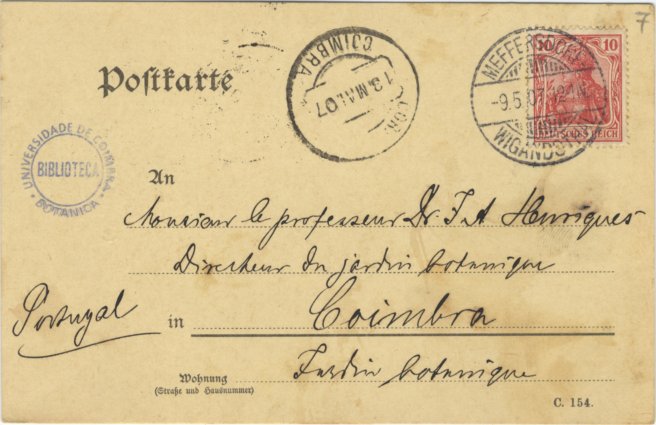 7
COIMBRA
13.MAI.07
MEFFERSDORF
-9.5.07.
WIGANDSTHAL
10 10
DEUTSCHES REICH
Postkarte
UNIVERSIDADE DE COIMBRA
BIBLIOTECA
BOTANICA
An
Monsieur le professeur Dr. J A Henriques
Directeur du jardin botanique
Portugal
in Coimbra
Jardin botanique
Wohnung
(Straße und Hausnummer)
C. 154.